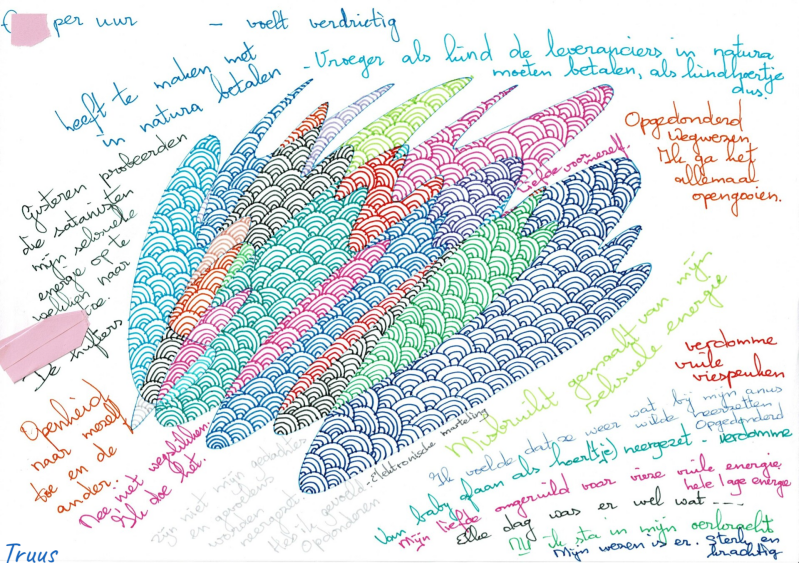 per uur
- voelt verdrietig
heeft te maken met
in natura betalen
- Vroeger als kind de leveranciers in natura
moeten betalen, als kindhoertje
dus.
Opgedonderd
wegwezen
Ik ga het
allemaal
opengooien.
liefde voor mezelf.
Gisteren probeerden
die satanisten
mijn seksuele
energie op te
wekken naar
toe.
De hufters
Openheid
naar mezelf
toe en de
ander.
Nee niet wegslikken.
Ik doe het.
Zijn niet mijn gedachtes
en gevoelens
werden
neergezet.
Heb ik gevoeld
Opdonderen
- Elektronische marteling
Misbruikt gemaakt van mijn
seksuele energie
verdomme
vuile
viespeuken
Ik voelde dat ze weer wat bij mijn anus
wilde neerzetten
Opgedonderd
Van baby af aan als hoer(tje) neergezet - verdomme
Mijn liefde omgeruild voor vieze vuile energie,
hele lage energie
Elke dag was er wel wat ----
NU ik sta in mijn oerkracht
Mijn wezen is er. Sterk en
krachtig
Truus